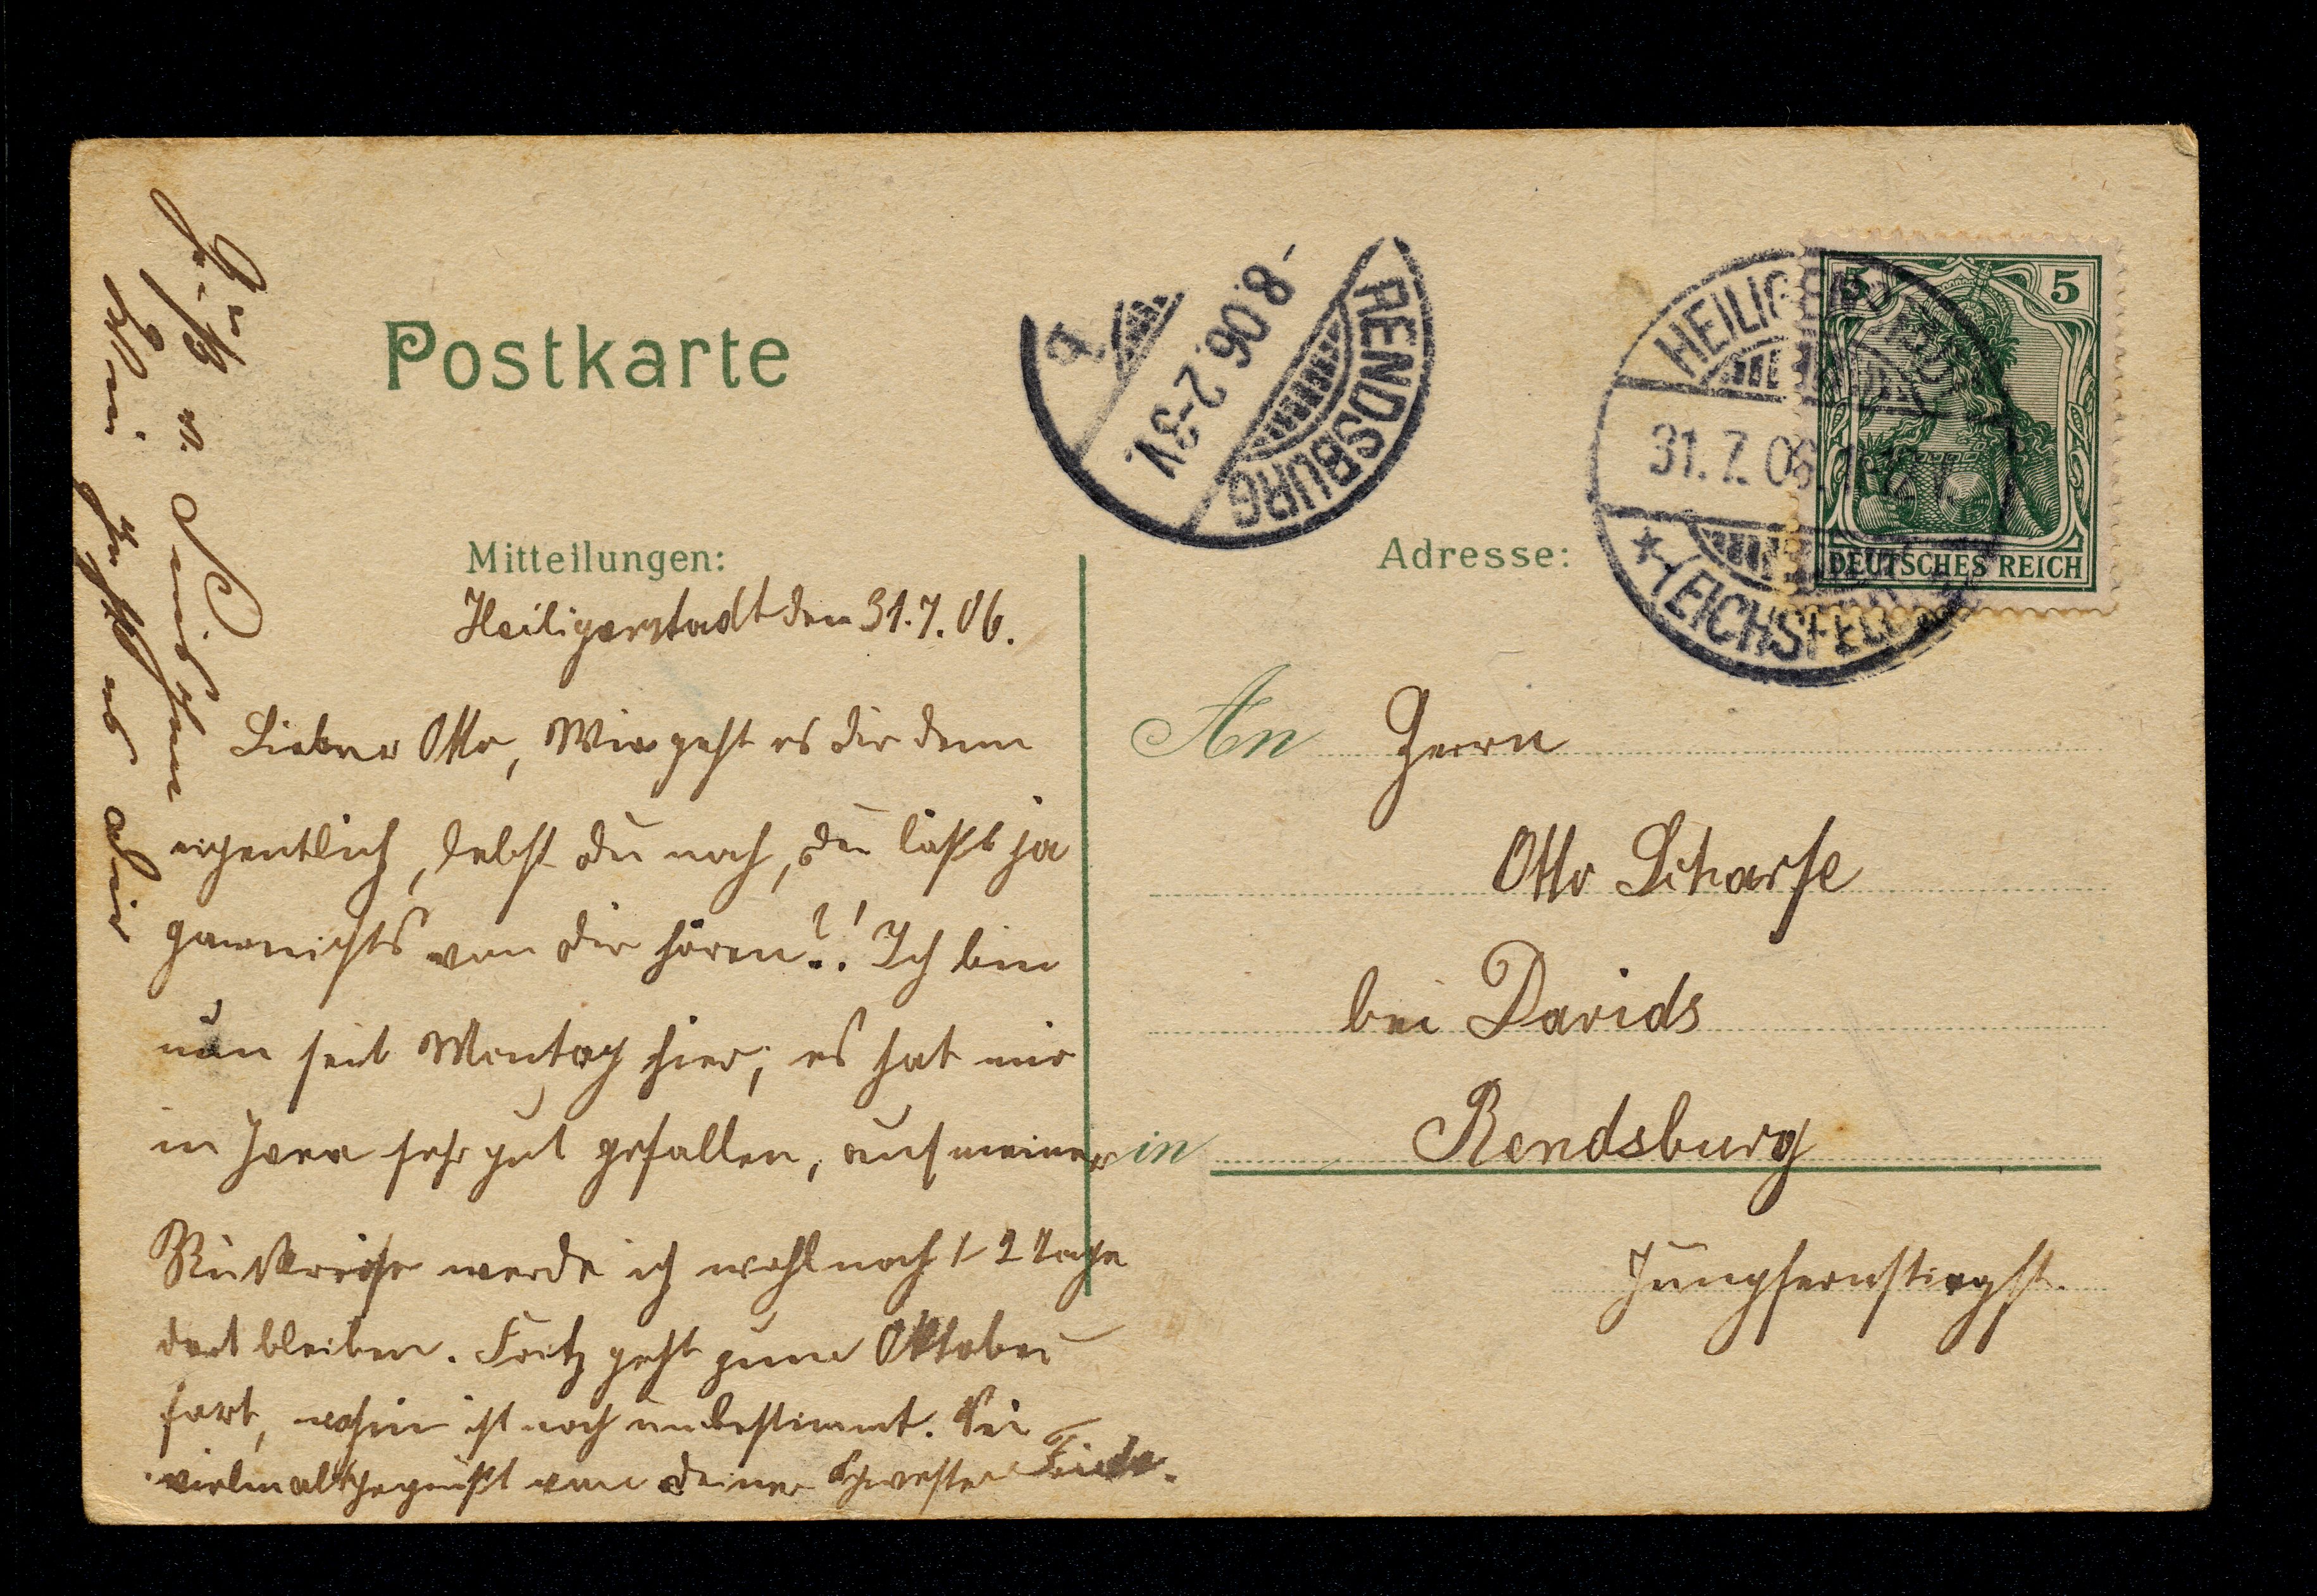 Postkarte
RENDSBURG
8.06. 2-3V.
HEILIGENSTADT
31.7.06.
* (EICHSFELD)
5 5
DEUTSCHES REICH
Mitteilungen:
Heiligenstadt den 31.7.06.
Lieber Otto, Wie geht es dir denn
eigentlich, lebst du noch, du läßt ja
garnichts von dir hören?! Ich bin
nun seit Montag hier; es hat mir
in Jena sehr gut gefallen, auf meiner
Rückreise werde ich wohl noch 1-2 Tage
dort bleiben. Fritz geht zum Oktober
fort, wohin ist noch unbestimmt. Sei
vielmals gegrüßt von deiner Schwester Frieda.
Gruß v.
wie geht es dir
Adresse:
An Herrn
Otto Scharfe
bei Davids
in Rendsburg
Jungfernstiegst.